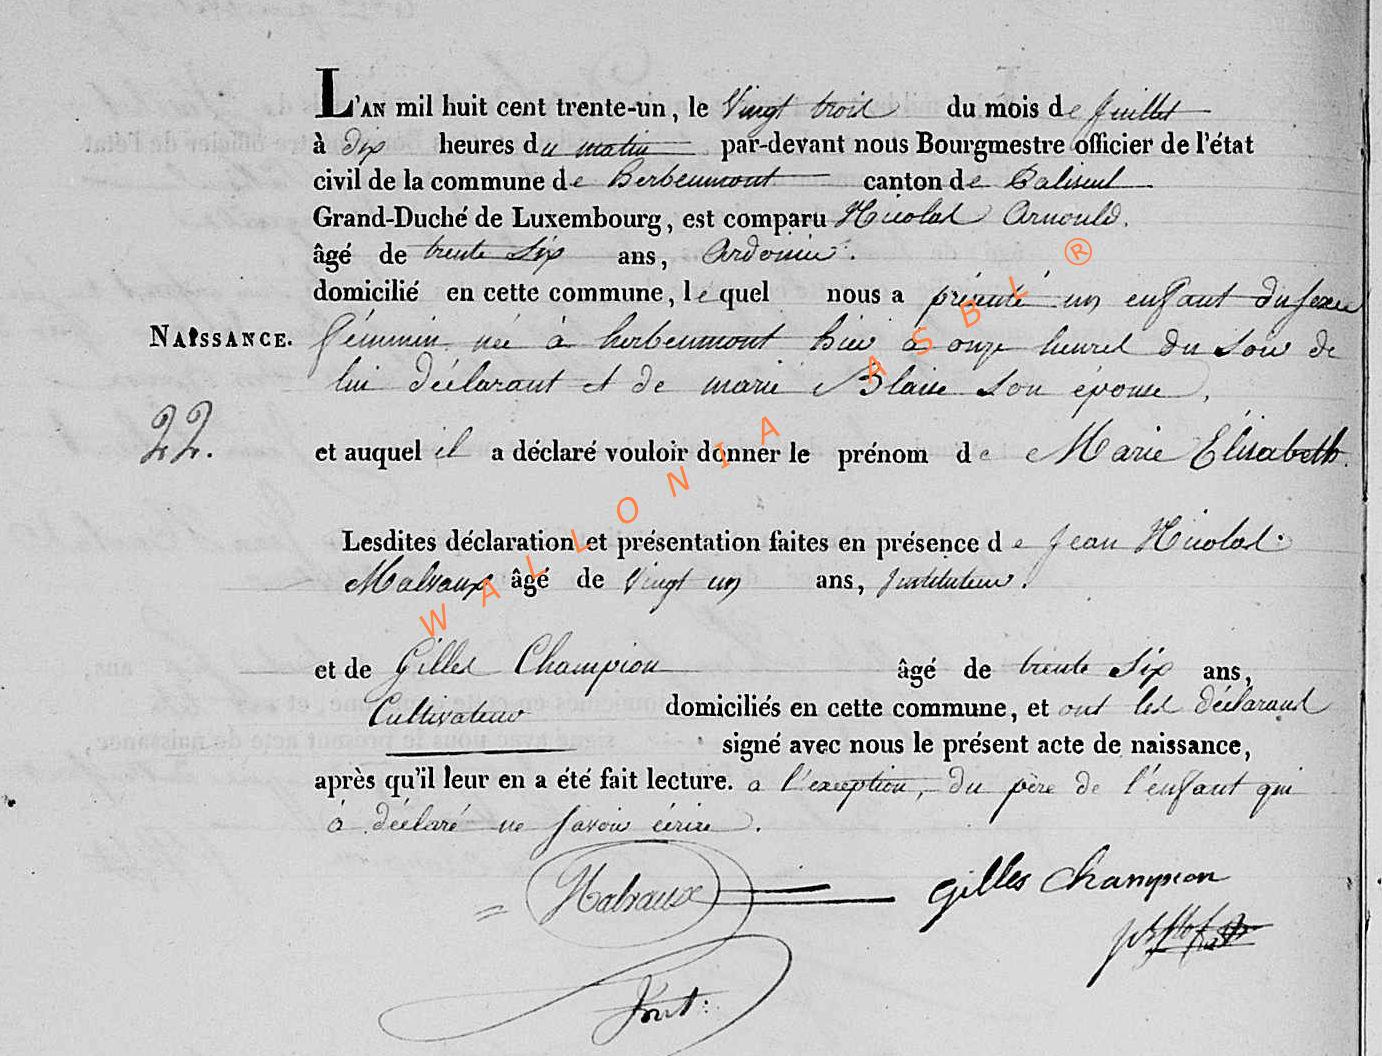 L'AN mil huit cent trente-un, le Vingt trois du mois de Juillet
à dix heures du matin par-devant nous Bourgmestre officier de l'état
civil de la commune de Herbeumont canton de Paliseul
Grand-Duché de Luxembourg, est comparu Nicolas Arnould.
âgé de trente Six ans, Ardoisier.
domicilié en cette commune, lequel nous a présenté un enfant du sexe
NAISSANCE. féminin née à herbeumont hier à onze heures du Soir de
lui déclarant et de marie Blaise Son épouse,
22. et auquel il a déclaré vouloir donner le prénom de Marie Elisabeth.
Lesdites déclaration et présentation faites en présence de Jean Nicolas
Malvaux âgé de Vingt un ans, Instituteur.
et de Gilles Champion âgé de trente Six ans,
Cultivateur domiciliés en cette commune, et ont les déclarans
signé avec nous le présent acte de naissance,
après qu'il leur en a été fait lecture. a l'exception, du père de l'enfant qui
à déclaré ne savoir écrire.
Malvaux gilles champion
WALLONIA ASBL ®